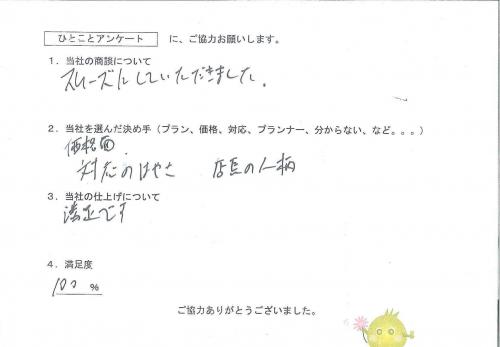 ひとことアンケート に、ご協力お願いします。
1．当社の商談について
スムーズにしていただきました。
2．当社を選んだ決め手（プラン、価格、対応、プランナー、分からない、など。。。）
価格面
対応のはやさ 店長の人柄
3．当社の仕上げについて
満足です
4．満足度
100 %
ご協力ありがとうございました。